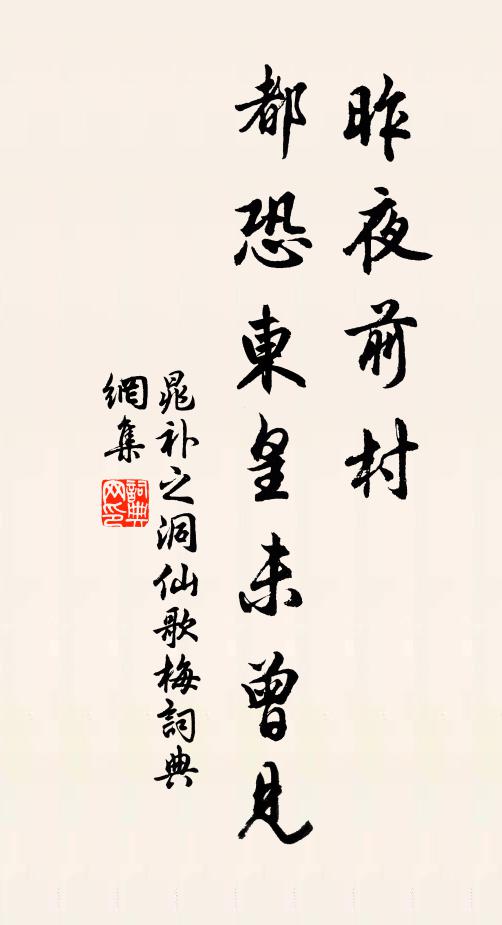 昨夜前村
都恐東皇未曾見
晁补之洞仙歌梅詞典
網集
詞典